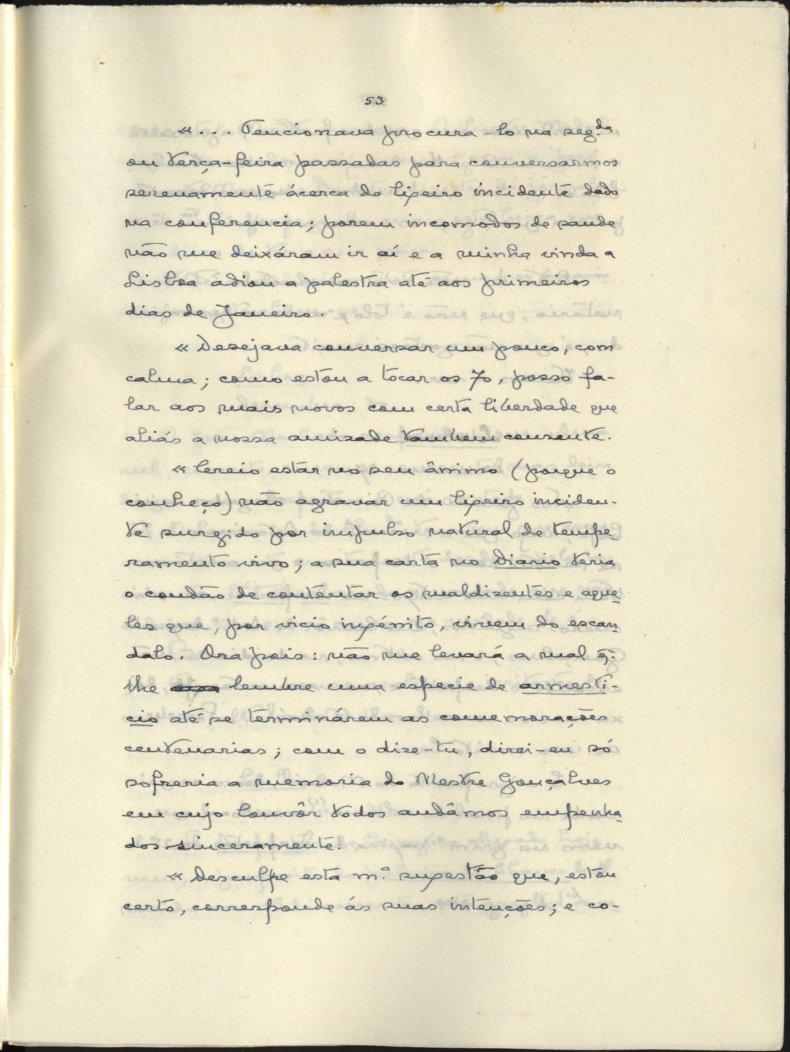 53
«... Tencionava procura-lo na seg.da
ou terça-feira passadas para conversarmos
serenamente ácerca do lijeiro incidente dado
na conferencia; porem incomodos de saude
não me deixáram ir aí e a minha vinda a
Lisboa adiou a palestra até aos primeiros
dias de Janeiro.
« Desejava conversar um pouco, com
calma; como estou a tocar os 70, posso fa-
lar aos mais novos com certa liberdade que
aliás a nossa amizade tambem consente.
« Creio estar no seu ânimo (porque o
conheço) não agravar um lijeiro inciden-
te surgido por impulso natural de tempe-
ramento vivo; a sua carta no Diario teria
o condão de contentar os maldizentes e aque-
les que, por vicio injénito, vivem do escan-
dalo. Ora pois: não me levará a mal q.
lhe lembre uma especie de armesti-
cio até se terminarem as comemorações
centenarias; com o dize-tu, direi-eu só
sofreria a memoria do Mestre Gonçalves
em cujo louvôr todos andâmos empenha-
dos sinceramente.
« Desculpe esta m.ª sujestão que, estou
certo, corresponde ás suas intenções; e co-